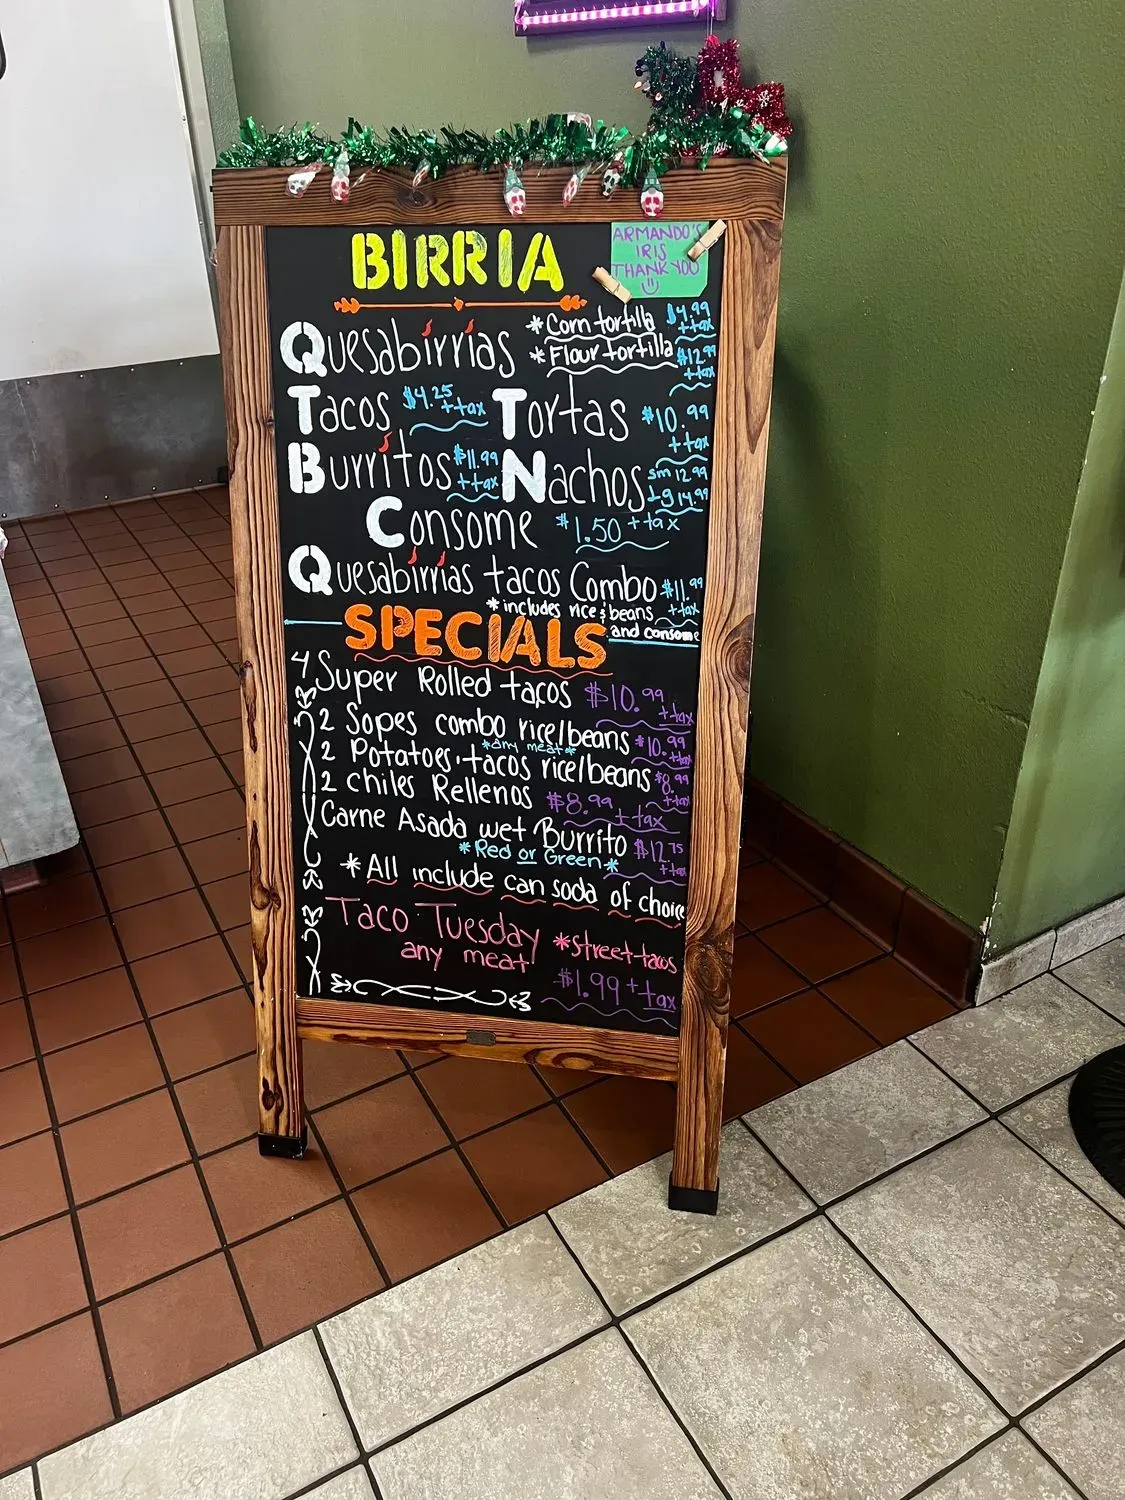 BIRRIA
ARMANDO'S
IRIS
THANK YOU
Quesabírrías
*Corn tortilla $4.99 + tax
*Flour tortilla $12.99 + tax
Tacos $4.25 + tax
Tortas $10.99 + tax
Burrítos $11.99 + tax
Nachos sm 12.99
Lg 14.99
Consome $1.50 + tax
Quesabírrías tacos Combo $11.99 + tax
*includes rice & beans
and consome
SPECIALS
4 Super Rolled tacos $10.99 + tax
2 Sopes combo rice/beans $10.99 + tax
*any meat*
2 Potatoes tacos rice/beans $8.99 + tax
2 chiles Rellenos $8.99 + tax
Carne Asada wet Burrito $12.75 + tax
*Red or Green*
*All include can soda of choice
Taco Tuesday *street tacos
any meat
$1.99 + tax